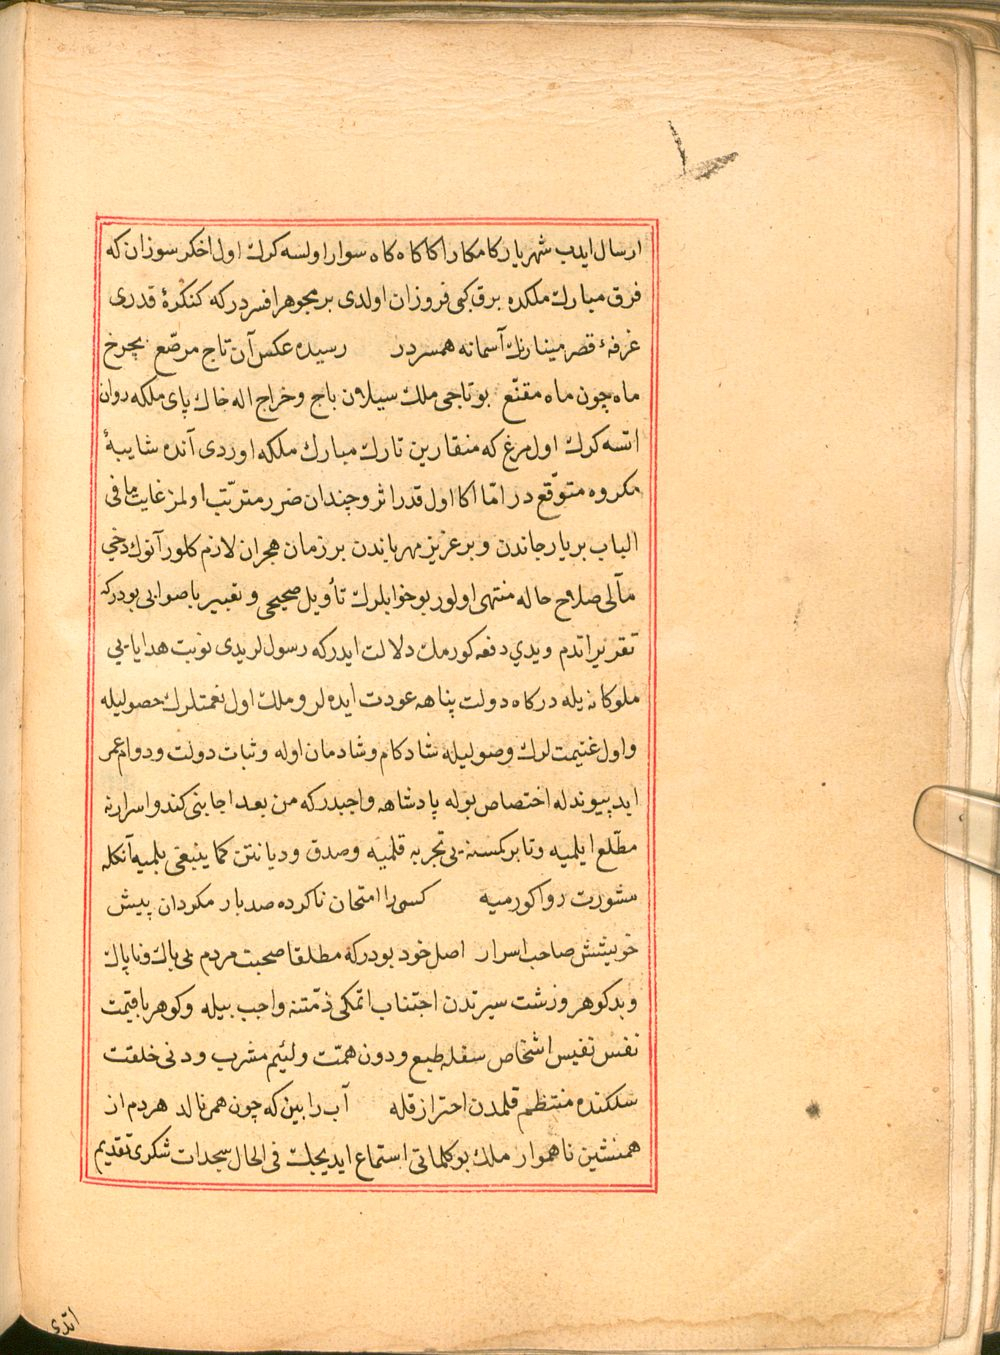 ارسال ایدب شهریار کامکار اکا کاه کاه سوار اولسه کرك اول اخکر سوزان که
فرق مبارك ملکده برق کبی فروزان اولدی بر مجوهر افسردر که کنکرهٔ قدری
غرفهٔ قصر مینارنك آسمانه همسردر رسیده عکس آن تاج مرصّع بچرخ
ماه چون ماه مقنّع بو تاجی ملك سیلان باج و خراج اله خاك پای ملکه روان
اتسه کرك اول مرغ که منقارین تارك مبارك ملکه اوردی آنده شایبهٔ
مکروه متوقّع در امّا اکا اول قدر اثر و چندان ضرر مترتّب اولمز غایت ما فی
الباب بر یار جاندن و بر عزیز مهرباندن بر زمان هجران لازم کلور آنوك دخی
مآلی صلاح حاله منتهی اولور بو خوابلرك تأویل صحیحی و تعبیر با صوابی بودر که
تقریر اتدم ویدی دفعه کورمك دلالت ایدر که رسول لر یدی نوبت هدایایی
ملوکانه یله درکاه دولت پناهه عودت ایده لر و ملك اول نعمتلرك حصولیله
واول غنیمت لرك وصولیله شادکام وشادمان اوله وثبات دولت ودوام عمر
ابد پیوندله اختصاص بوله پادشاهه واجبدر که من بعد اجانبی کندو اسرارنه
مطّلع ایلمیه وتا بر کسنه یی تجربه قلمیه وصدق ودیانتن کما ینبغی بلمیه آنکله
مشورت روا کورمیه کسی را امتحان ناکرده صد بار مکردان پیش
خویشش صاحب اسرار اصل خود بودر که مطلقا صحبت مردم بی باك وناپاك
وبدکوهر وزشت سیرتدن اجتناب اتمکی ذمّتنه واجب بیله وکوهر با قیمت
نفس نفیس اشخاص سفله طبع ودون همّت ولئیم مشرب ودنی خلقت
سلکنده منتظم قلمدن احتراز قله آب را بین که چون همی نالد هردم از
همنشین ناهموار ملك بو کلماتی استماع ایدیجك فی الحال سجدات شکری تقدیم
اتدی